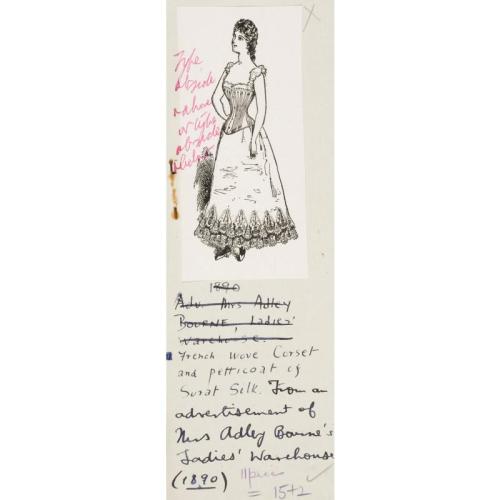 Type
above
or
1890
Adv. Mrs Adley
BOURNE, Ladies'
Warehouse.
French wove Corset
and petticoat of
Surat Silk. From an
advertisement of
Mrs Adley Bourne's
Ladies' Warehouse
(1890)
= 15+2